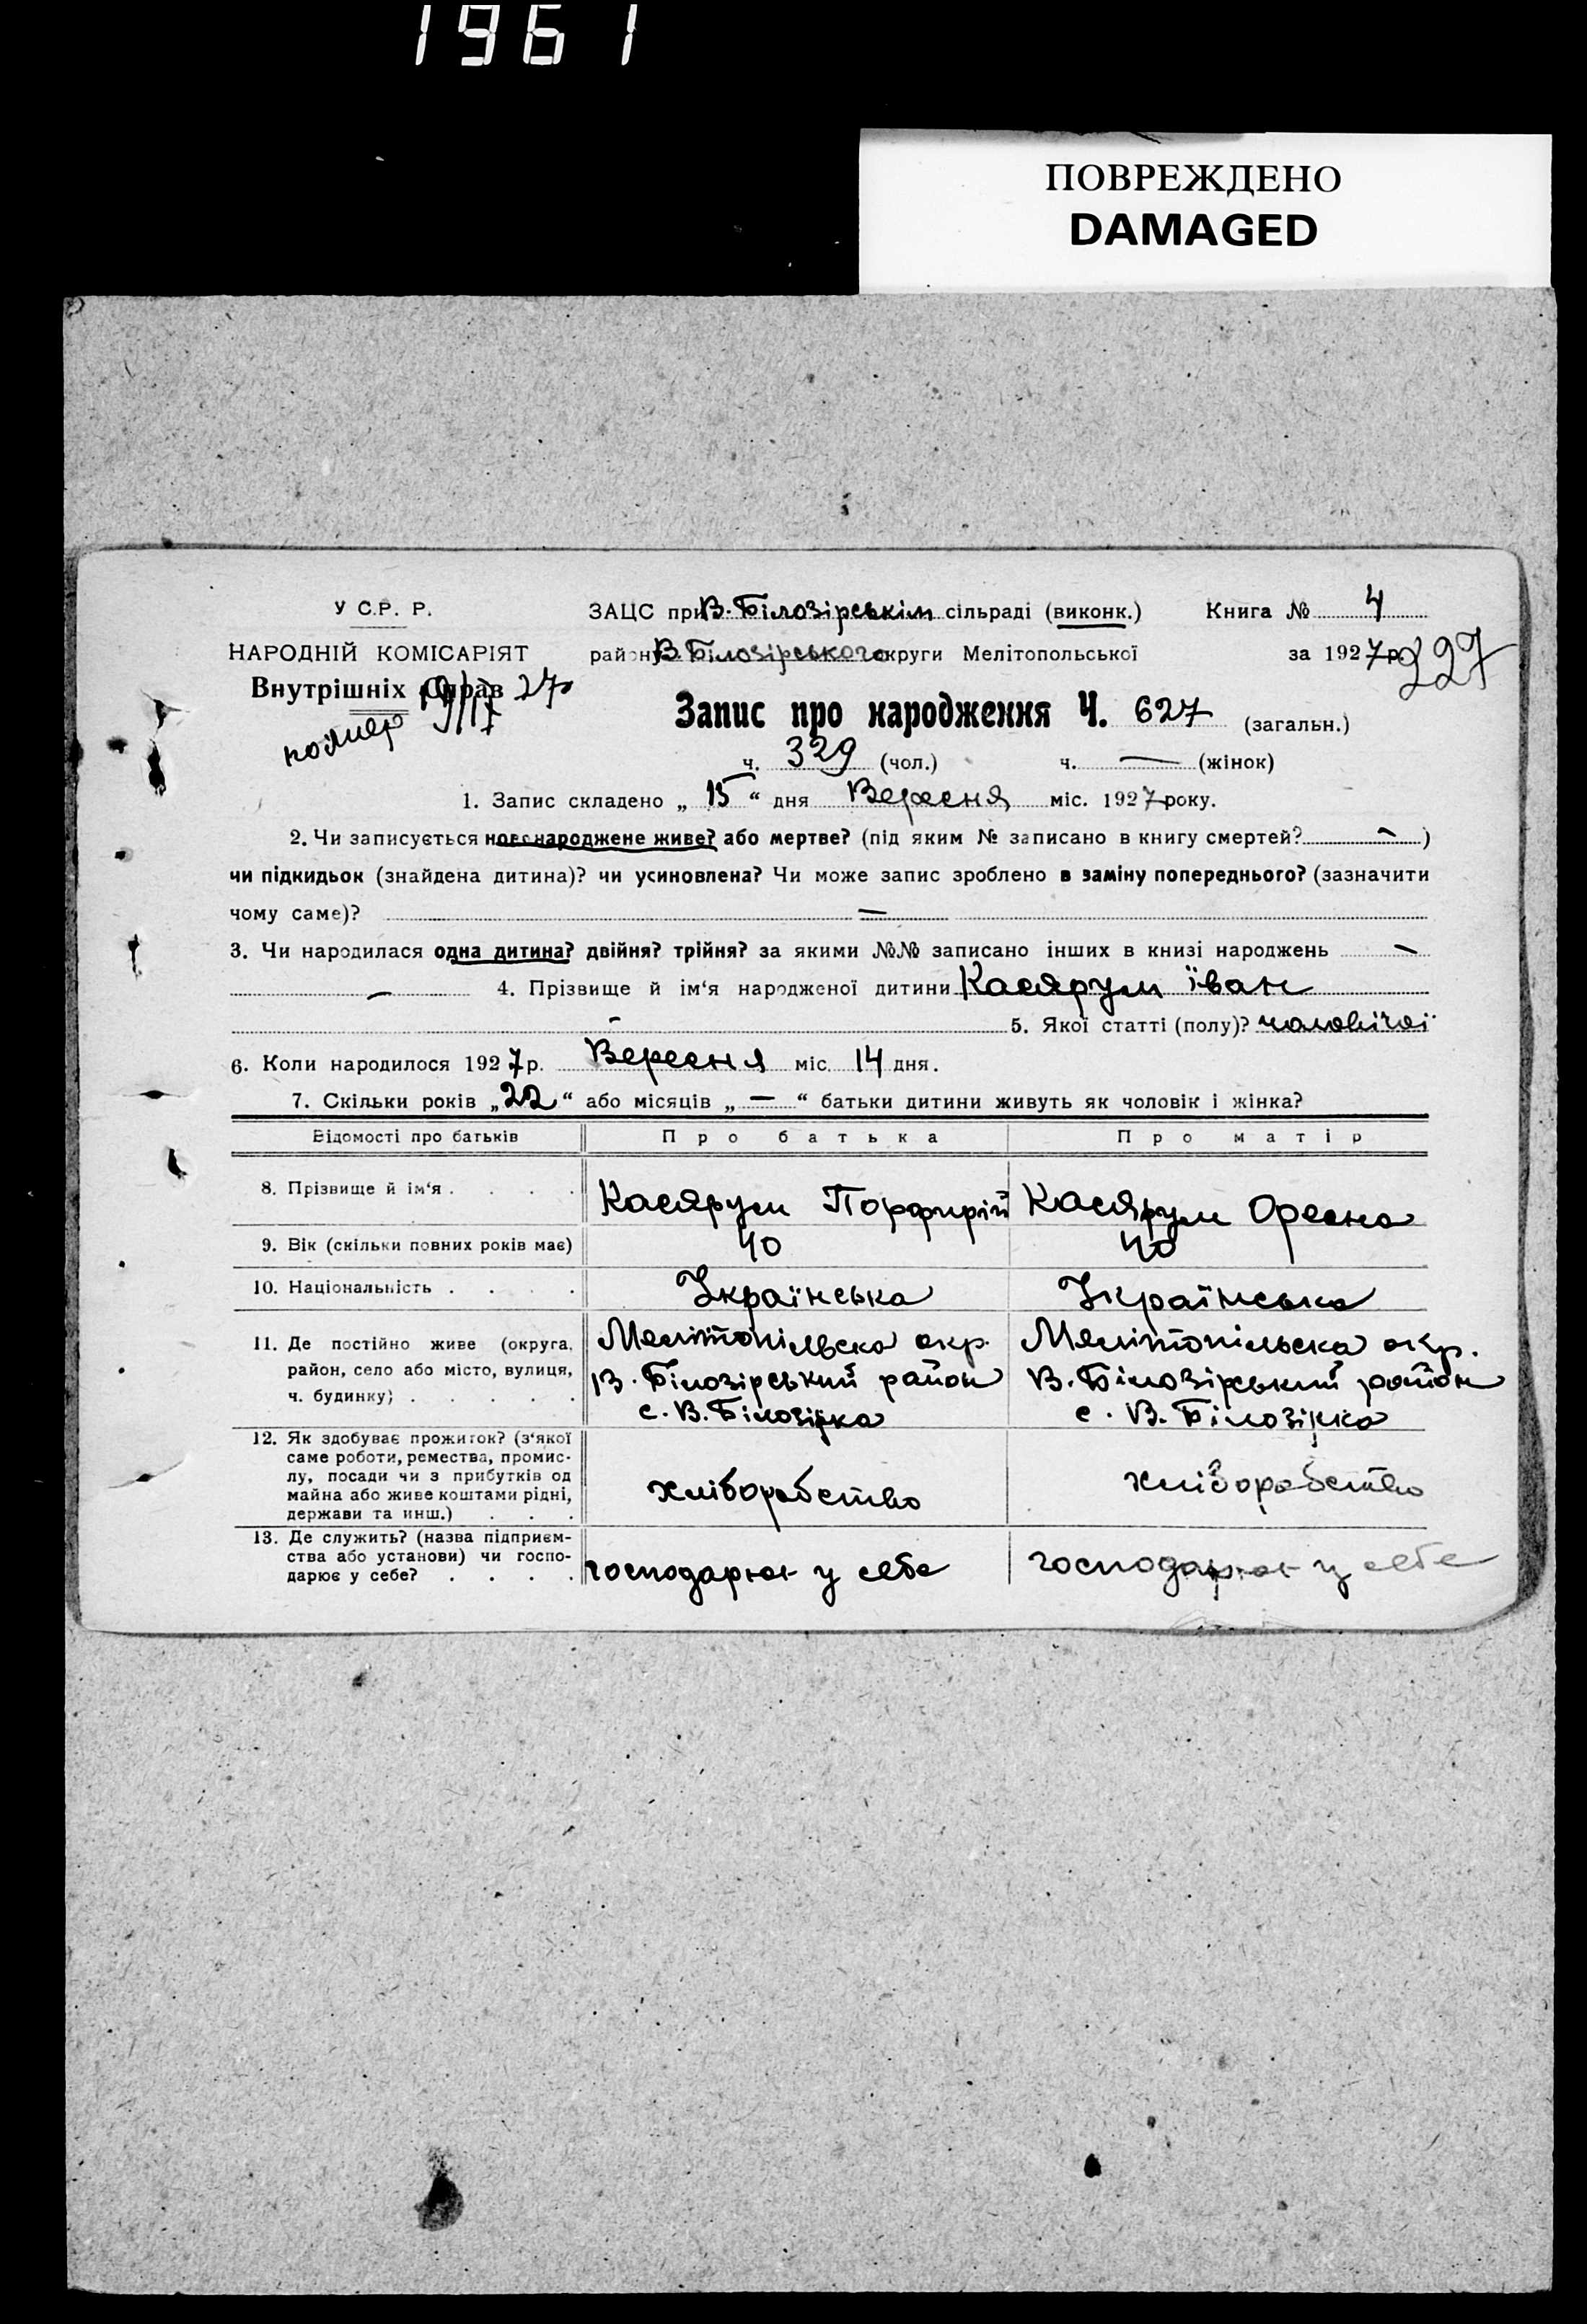 1961
ПОВРЕЖДЕНО
DAMAGED
У С.Р. Р.
ЗАЦС при В. Білозірськім сільраді (виконк.) Книга № 4
НАРОДНІЙ КОМІСАРІЯТ
району В Білозірського округи Мелітопольської за 1927 р. 227
Внутрішніх Справ
помер 27
Запис про народження Ч. 627 (загальн.)
ч. 329 (чол.) ч. — (жінок)
1. Запис складено „ 15 “ дня Вересня міс. 1927 року.
2. Чи записується новонароджене живе? або мертве? (під яким № записано в книгу смертей? — )
чи підкидьок (знайдена дитина)? чи усиновлена? Чи може запис зроблено в заміну попереднього? (зазначити
чому саме)? —
3. Чи народилася одна дитина? двійня? трійня? за якими №№ записано інших в книзі народжень —
— 4. Прізвище й ім‘я народженої дитини Касярум Їван
- 5. Якої статті (полу)? чоловічої
6. Коли народилося 1927 р. Вересня міс. 14 дня.
7. Скільки років „22“ або місяців „ — “ батьки дитини живуть як чоловік і жінка?
Відомості про батьків Про батька Про матір
8. Прізвище й ім‘я . . . . Касярум Порфирій Касярум Оресна
9. Вік (скільки повних років має) 40 40
10. Національність . . . . Українська Українська
11. Де постійно живе (округа, район, село або місто, вулиця, ч. будинку) . . . . .
Мелітопільска окр. Мелітопільска окр.
В. Білозірський район В. Білозірський район
с. В. Білозірка с. В. Білозірка
12. Як здобуває прожиток? (з‘якої
саме роботи, ремества, промис-
лу, посади чи з прибутків од
майна або живе коштами рідні,
держави та инш.) . . .
хліборобство хліборобство
13. Де служить? (назва підприєм-
ства або установи) чи госпо-
дарює у себе? . . . .
господарює у себе господарює у себе